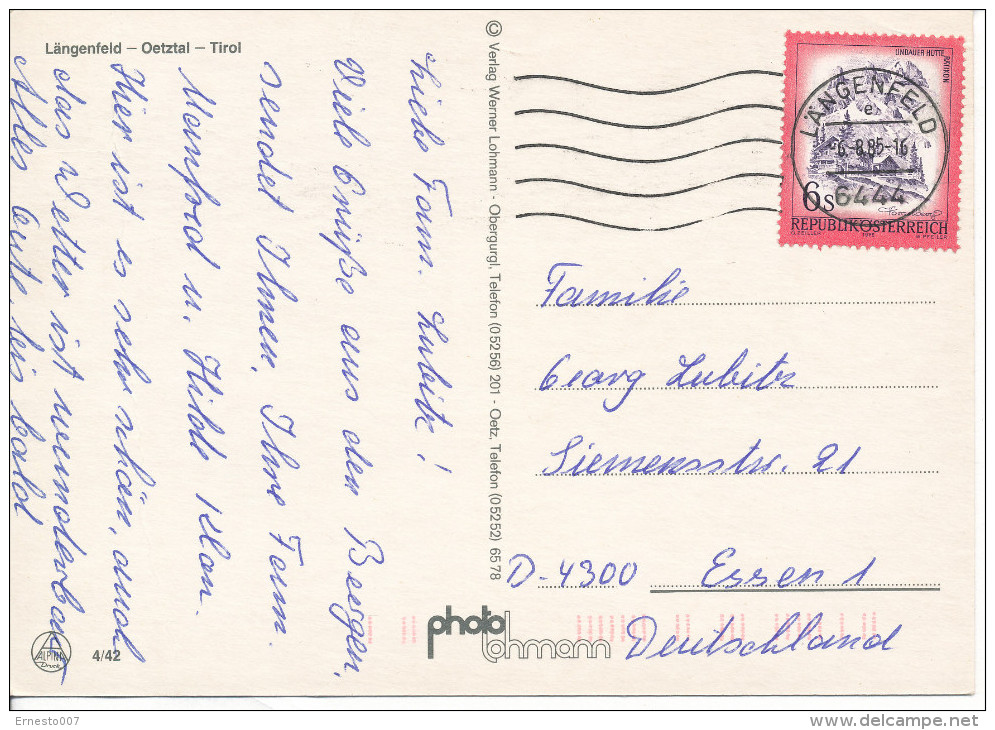 Längenfeld – Oetztal – Tirol
Liebe Fam. Lubitz!
Viele Grüße aus den Bergen,
sendet Ihnen, Ihre Fam.
Manfred u. Hilde
Hier ist es sehr schön, auch
das Wetter ist wunderbar
Alles Gute, bis bald
4/42
ALPINA
Druck
© Verlag Werner Lohmann - Obergurgl, Telefon (05256) 201 - Oetz, Telefon (05252) 6578
photo
lohmann
LINDAUER HÜTTE RÄTIKON
6S
REPUBLIK ÖSTERREICH
LÄNGENFELD
e
-6.-8.85-16
6444
Familie
Georg Lubitz
Siemensstr. 21
D-4300 Essen 1
Deutschland
Ernesto007
www.delcampe.net